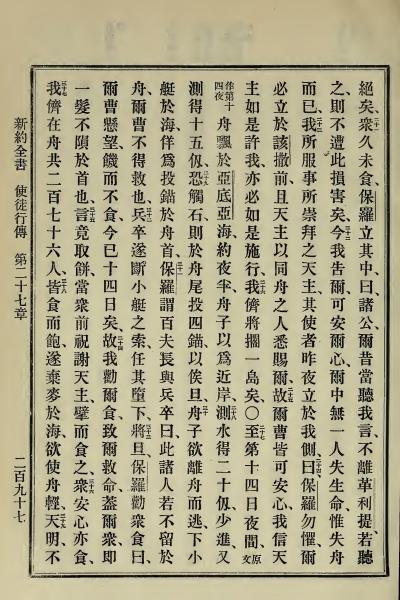 絕矣、二十一衆久未食、保羅立其中曰、諸公、爾昔當聽我言、不離革利提、若聽
之、則不遭此損害矣、二十二今我告爾可安爾心、爾中無一人失生命、惟失舟
而已、二十三我所服事所崇拜之天主、其使者昨夜立於我側曰、二十四保羅勿懼、爾
必立於該撒前、且天主以同舟之人悉賜爾、二十五故爾曹皆可安心、我信天
主如是許我、亦必如是施行、二十六我儕將擱一島矣、○二十七至第十四日夜間、原文
作第十四夜 舟飄於亞底亞海、約夜半、舟子以爲近岸、二十八測水得二十仭、少進又
測得十五仭、二十九恐觸石、則於舟尾投四錨以俟旦、三十舟子欲離舟而逃、下小
艇於海、佯爲投錨於舟首、三十一保羅謂百夫長與兵卒曰、此諸人若不留於
舟、爾曹不得救也、三十二兵卒遂斷小艇之索、任其墮下、三十三將旦、保羅勸衆食曰、
爾曹懸望、饑而不食、今已十四日矣、三十四故我勸爾食、致爾救命、蓋爾衆卽
一髮不隕於首也、三十五言竟取餅、當衆前祝謝天主、擘而食之、三十六衆安心亦食、
三十七我儕在舟共二百七十六人、三十八皆食而飽、遂棄麥於海、欲使舟輕、三十九天明不
新約全書 使徒行傳 第二十七章 二百九十七